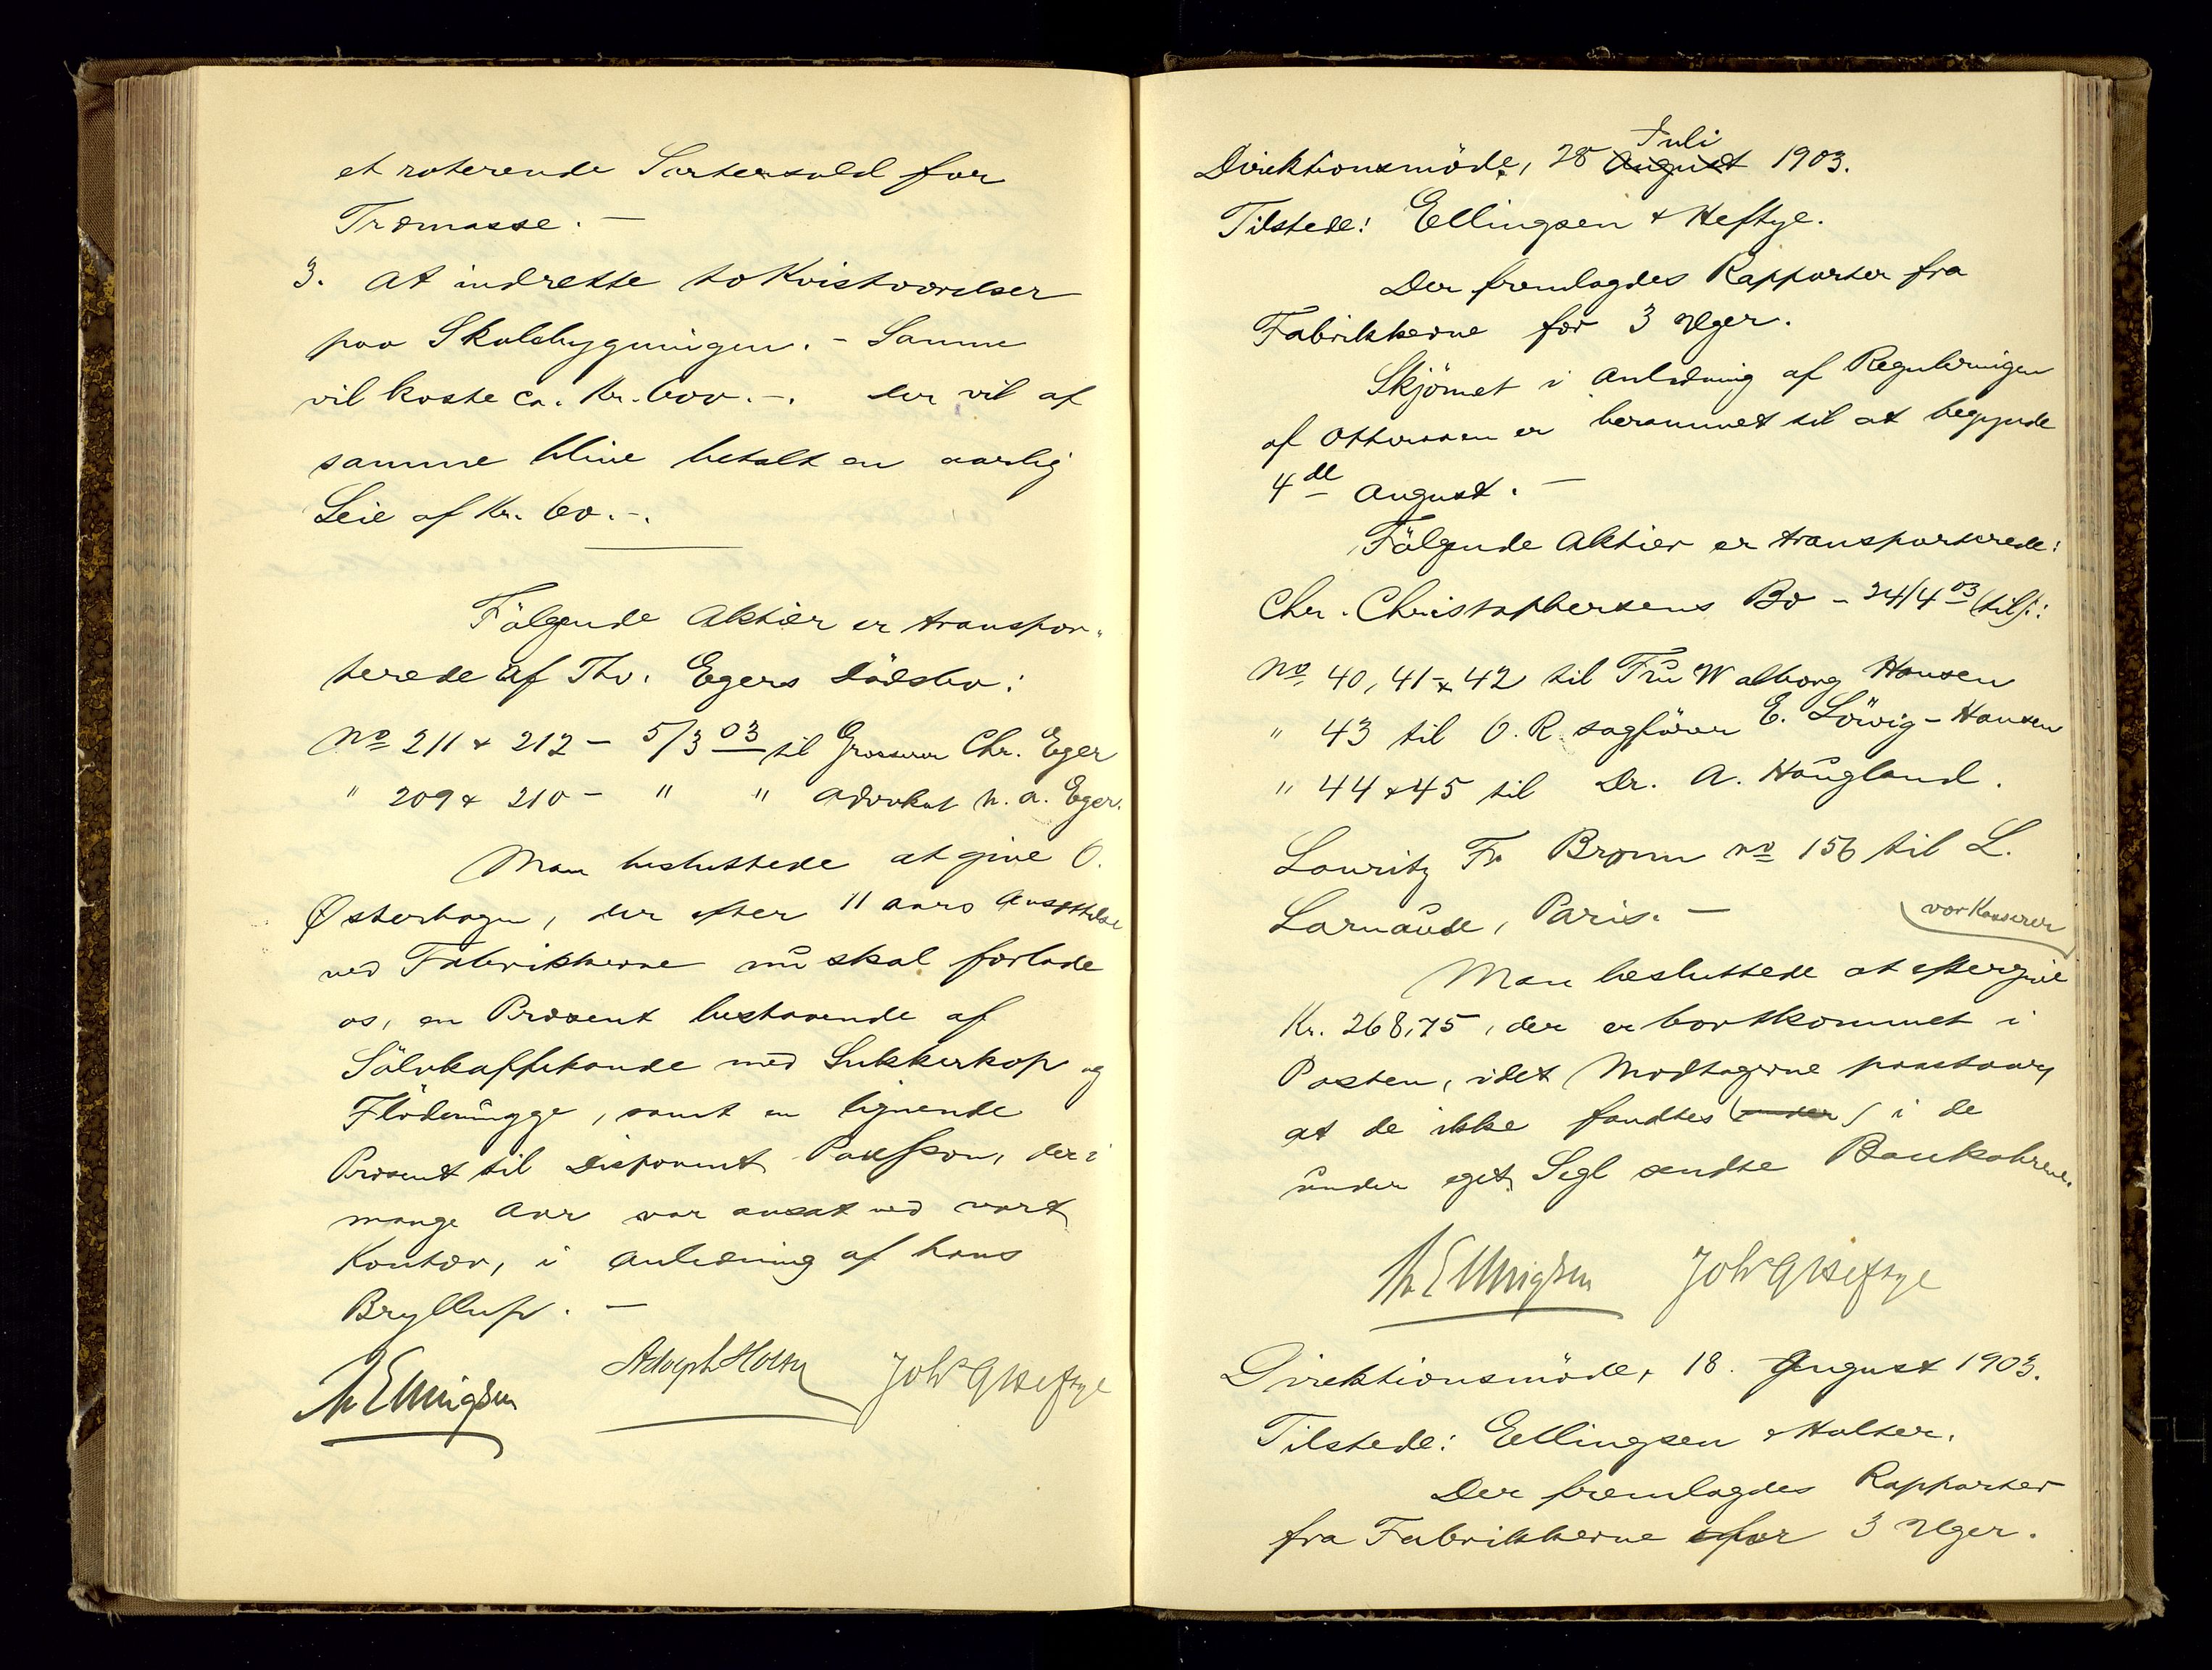 et roterende Sortersold for
Træmasse. —
3. At indrette to Kvistværelser
paa Skolebygningen. - Samme
vil koste ca. Kr. 600.-. Der vil af
samme blive betalt en aarlig
Leie af Kr. 60.-.
Fölgende Aktier er transpor-
terede af Thv. Egers Dödsbo:
No 211 & 212 - 5/3 03 til Grosserer Chr. Eger
" 209 & 210 - " " Advokat N. A. Eger.
Man besluttede at give O.
Østerhagen, der efter 11 aars Ansættelse
ved Fabrikkerne nu skal forlade
os, en Præsent bestaaende af
Sölvkaffekande med Sukkerkop og
Flödemugge, samt en lignende
Præsent til Disponent Paulsson, der i
mange Aar var ansat ved vort
Kontor, i Anledning af hans
Bryllup. —
Th Ellingsen Adolph Holter Joh G Heftye
Juli
Direktionsmöde, 28 August 1903.
Tilstede: Ellingsen & Heftye.
Der fremlagdes Rapporter fra
Fabrikkerne for 3 Uger.
Skjönnet i Anledning af Reguleringen
af Otteraaen er berammet til at begynde
4de August. —
Fölgende Aktier er transporterede:
Chr. Christophersens Bo - 24/4 03 (till):
No 40, 41 & 42 til Fru Walborg Hansen
" 43 til O. R. sagförer E. Lövig-Hansen
" 44 & 45 til Dr. A. Haugland.
Lauritz Fr Bronn no 156 til L.
Larnaude, Paris. —
vor Kasserer
Man besluttede at eftergive
Kr. 268,75, der er bortkommet i
Posten, idet Modtagerne paastaar,
at de ikke fandtes (under) i de
under eget Segl sendte Bankobreve.
Th Ellingsen Joh G Heftye
Direktionsmöde, 18. August 1903.
Tilstede: Ellingsen & Holter.
Der fremlagdes Rapporter
fra Fabrikkerne for 3 Uger.